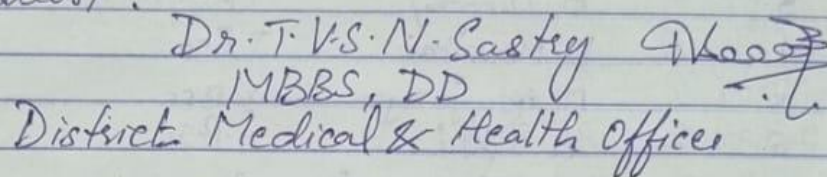 Dr. T.V.S.N. Sastry
MBBS, DD
District Medical & Health Officer